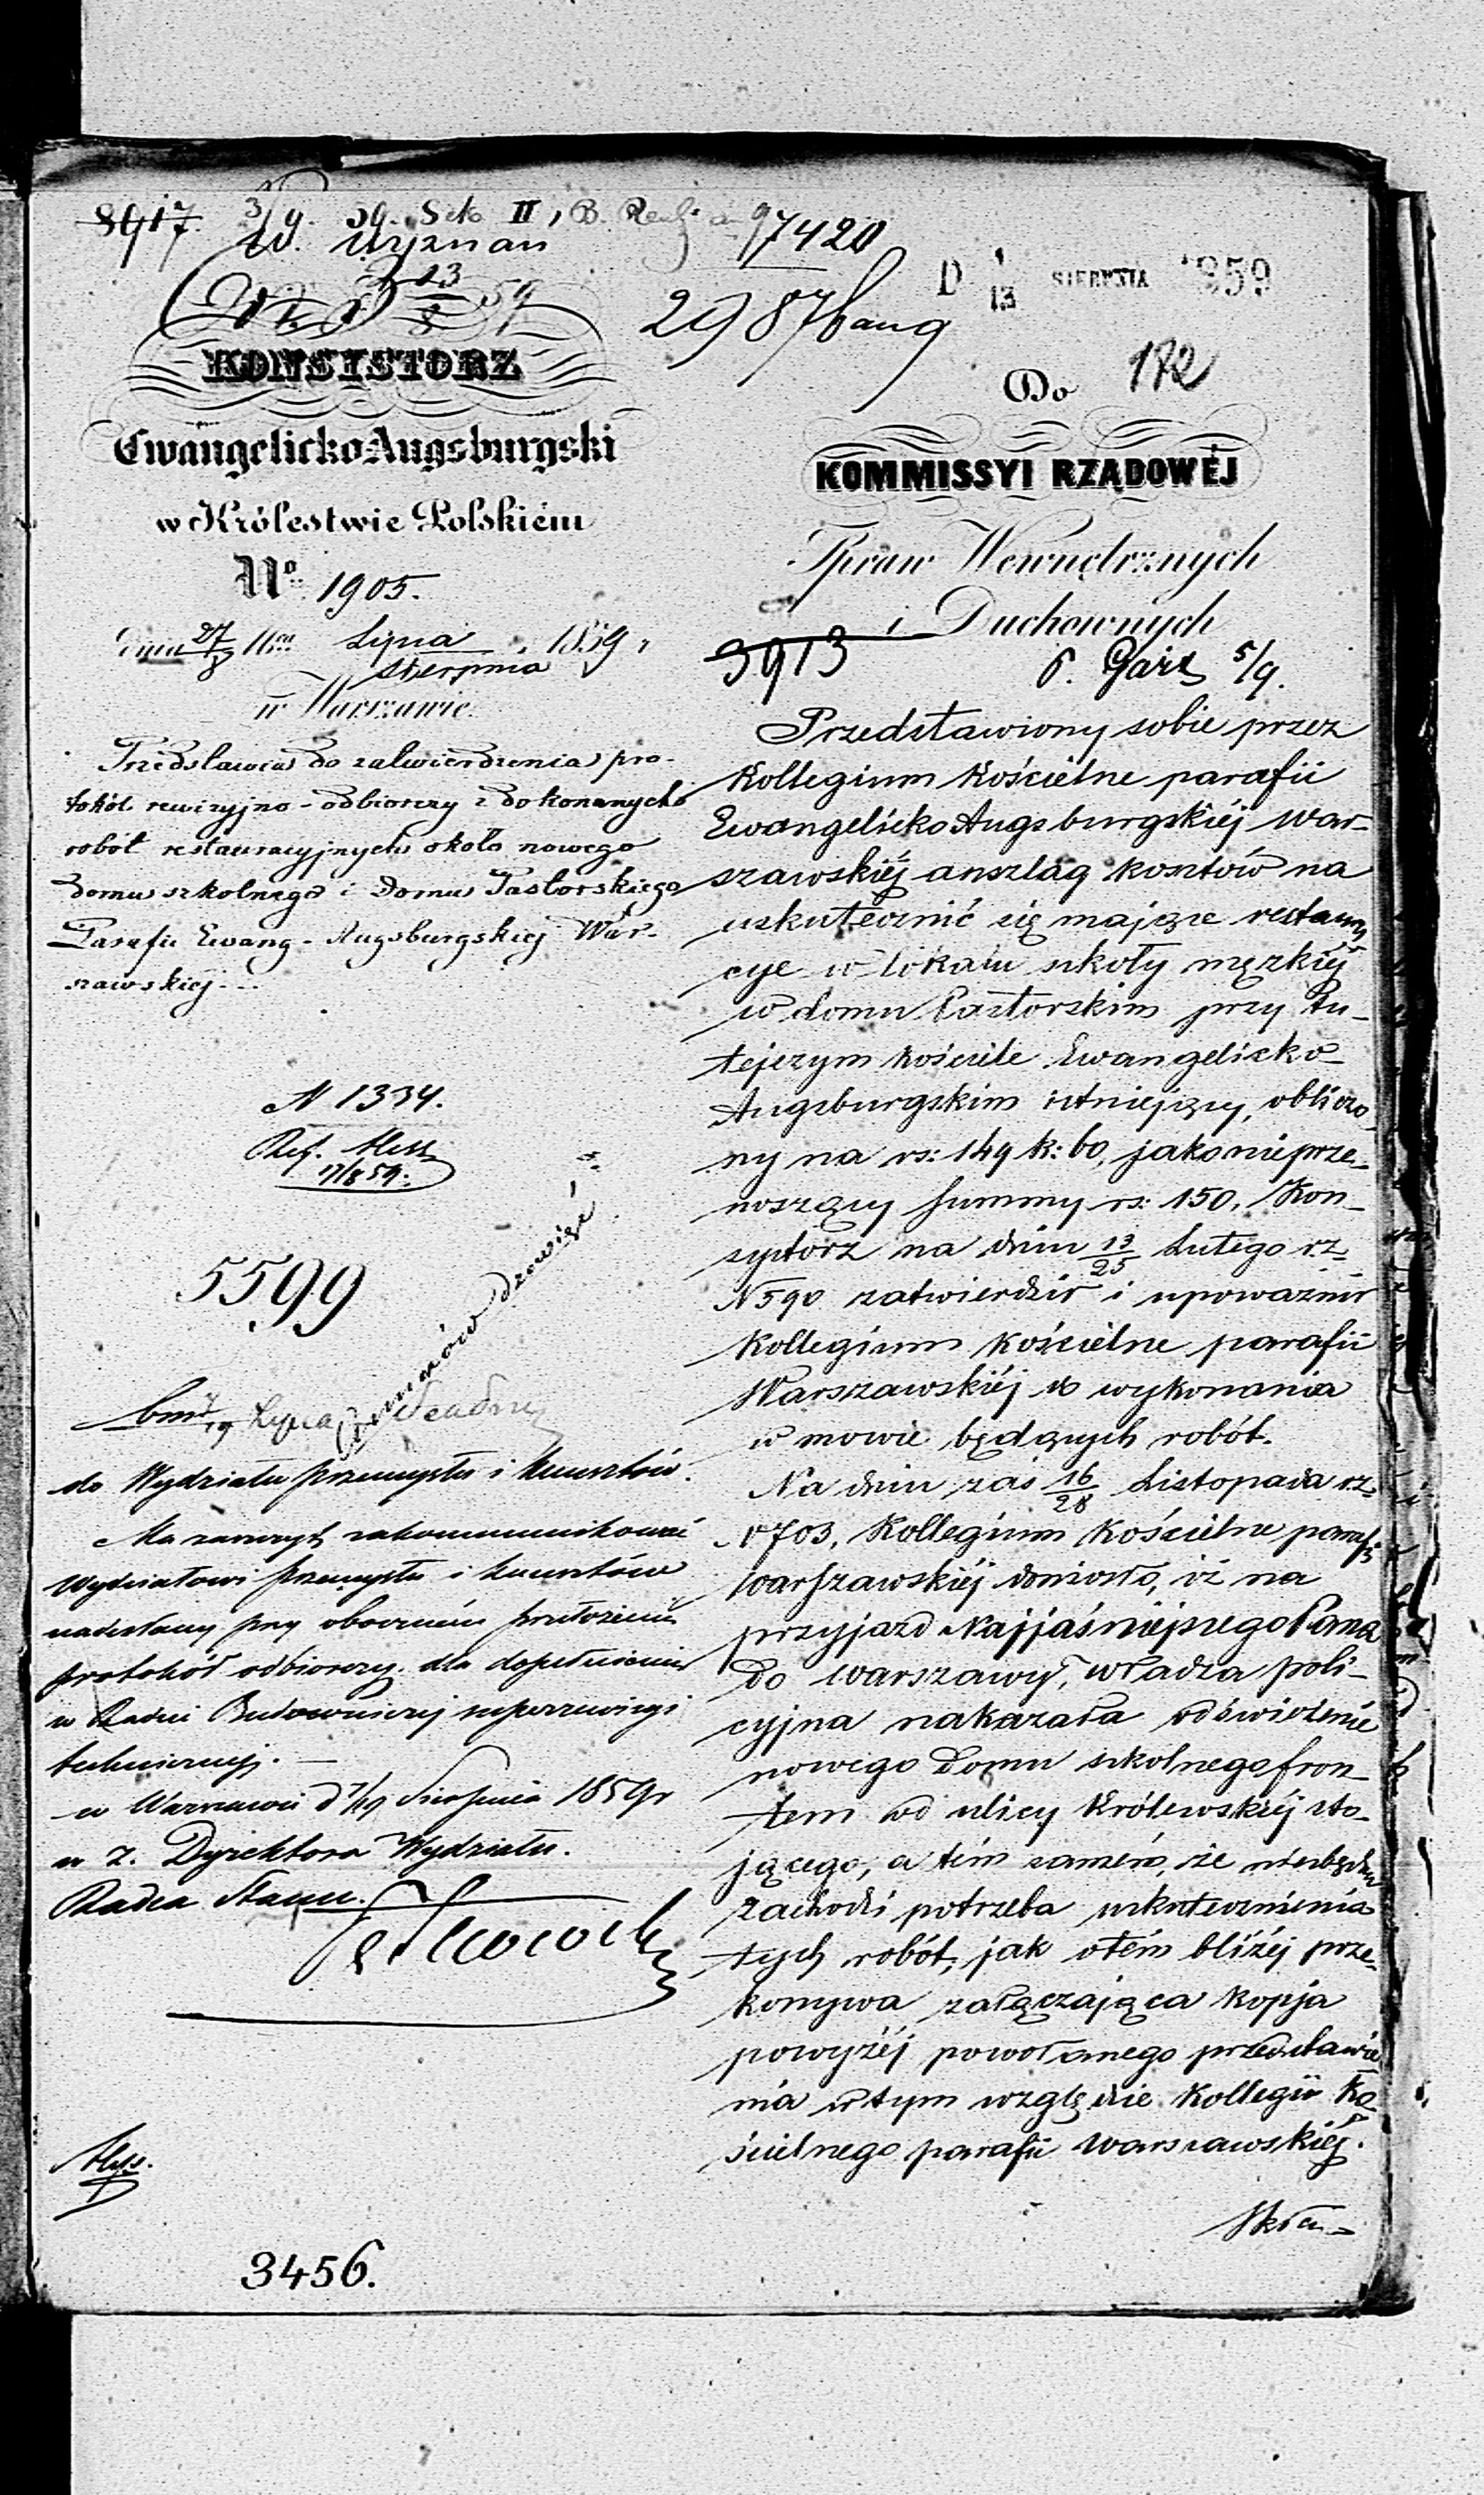 8917.
W. Wyznań
97420
29876 aug
D 1/13 SIERPNIA 1859
172
KONSYSTORZ
Ewangelicko-Augsburgski
w Królestwie Polskiém
No. 1905.
Dnia 27/8 Lipca/Sierpnia 1859 r.
w Warszawie.
Przedstawia do zatwierdzenia pro-
tokół rewizyjno-odbiorczy z dokonanych
robót restauracyjnych około nowego
domu szkolnego i Domu Pastorskiego
Parafii Ewang-Augsburgskiej War-
szawskiej.
N 1334.
5599
do Wydziału przemysłu i kunsztów.
Ma zaszczyt zakommunikować
Wydziałowi przemysłu i kunsztów
nadesłany przy obecnem przełożeniu
protokół odbiorczy, dla dopełnienia
w Radzie Budowniczej superrewizyi
technicznej.
w Warszawie d 7/19 Sierpnia 1859 r
w z. Dyrektora Wydziału.
Radca Stanu.
3456.
Do
KOMMISSYI RZĄDOWÉJ
Spraw Wewnętrznych
i Duchownych
3913
5/9.
Przedstawiony sobie przez
Kollegium Kościelne parafii
Ewangelicko Augsburgskiéj War-
szawskiéj anszlag kosztów na
uskutecznić się mające restaura
cye w lokalu szkoły męzkiéj
w domu Pastorskim przy tu-
tejszym kościele Ewangelicko-
Augsburgskim istniejący, obliczo-
ny na rs: 149 k: 60, jako nieprze-
noszący summy rs: 150, Kon-
systorz na dniu 13/25 Lutego r.z.
N 590 zatwierdził i upoważnił
Kollegium Kościelne parafii
Warszawskiéj do wykonania
w mowie będących robót.
Na dniu zaś 16/28 Listopada r.z.
N 703, Kollegium Kościelne parafii
Warszawskiéj doniosło, iż na
przyjazd Najjaśniejszego Pana
do Warszawy, władza poli-
cyjna nakazała odświeżenie
nowego Domu szkolnego fron-
tem od ulicy Królewskiéj sto-
jącego, a tém samém, że niezbędna
zachodzi potrzeba uskutecznienia
tych robót, jak o tém bliżéj prze-
konywa załączająca kopja
powyżéj powołanego przedstawie
nia w tym względzie Kollegii Ko
ścielnego parafii Warszawskiéj.